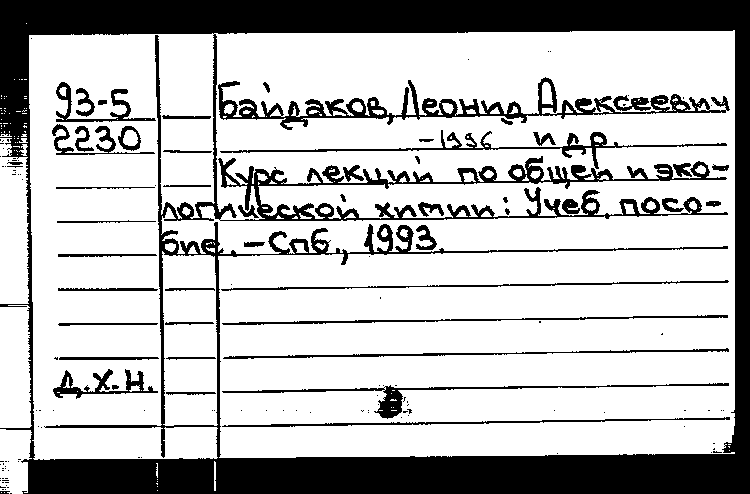 93-5 Байдаков, Леонид Алексеевич
2230 -1996 и др.
Курс лекций по общей и эко-
логической химии: Учеб. посо-
бие. - Спб., 1993.
Д.Х.Н.